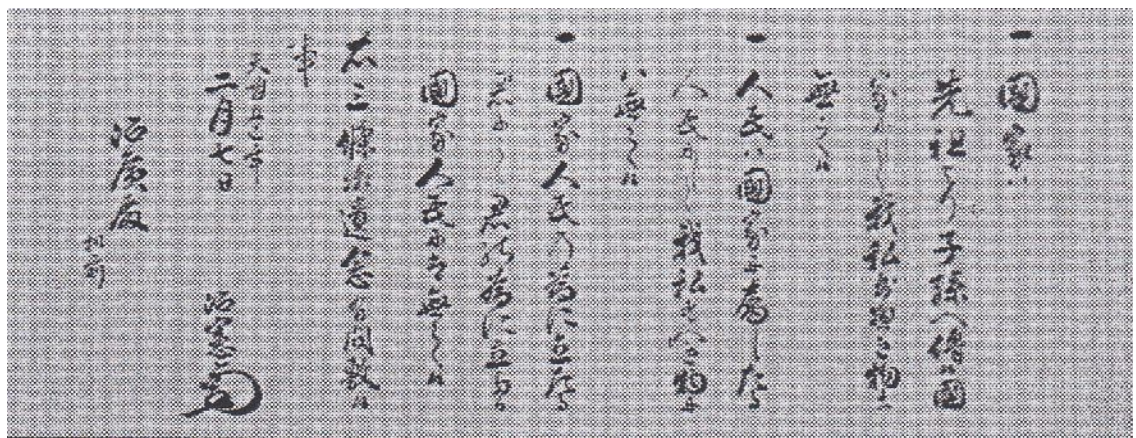 一 國家ハ
先祖より子孫へ傳候國
家にして我私すへき物ニハ
無之候
一 人民ハ國家ニ属したる
人民にして我私すへき物ニ
ハ無之候
一 國家人民の為に立たる
君にて君の為に立たる
國家人民にハ無之候
右三條御遺念有間敷候
事
天明五巳年
二月七日 治憲
治廣殿
机前